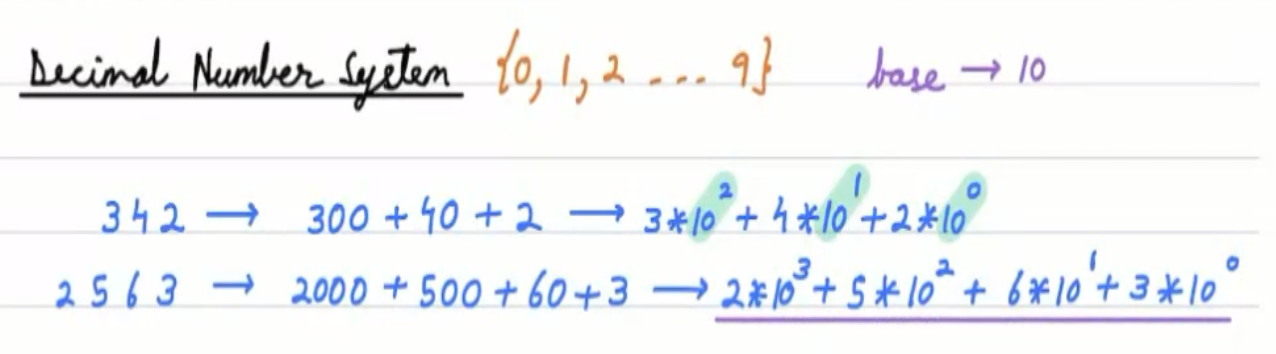 Decimal Number System {0, 1, 2 ... 9} base → 10
342 → 300 + 40 + 2 → 3*10² + 4*10¹ + 2*10⁰
2563 → 2000 + 500 + 60 + 3 → 2*10³ + 5*10² + 6*10¹ + 3*10⁰